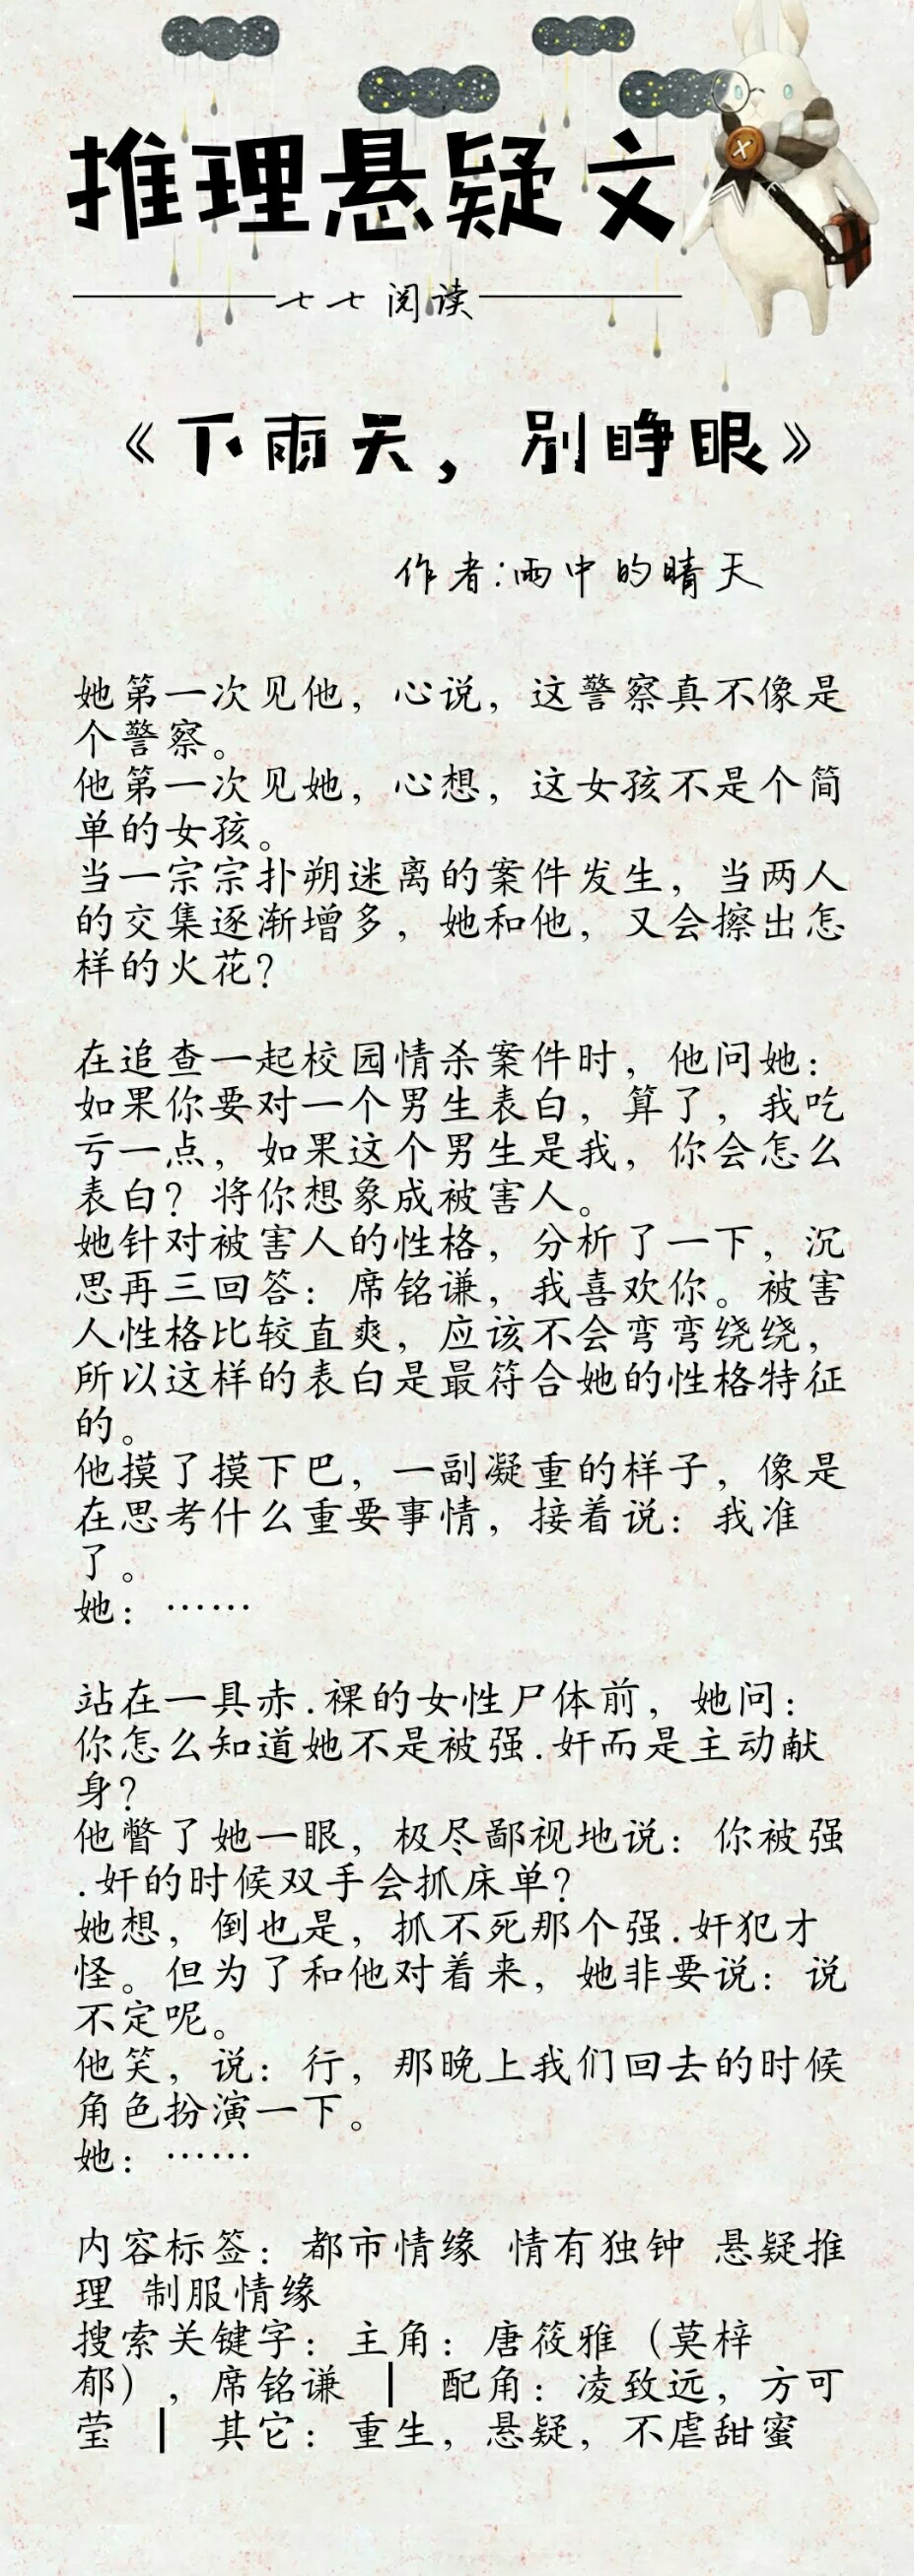 推理悬疑文
七七阅读
《下雨天，别睁眼》
作者:雨中的晴天
她第一次见他，心说，这警察真不像是
个警察。
他第一次见她，心想，这女孩不是个简
单的女孩。
当一宗宗扑朔迷离的案件发生，当两人
的交集逐渐增多，她和他，又会擦出怎
样的火花？
在追查一起校园情杀案件时，他问她：
如果你要对一个男生表白，算了，我吃
亏一点，如果这个男生是我，你会怎么
表白？将你想象成被害人。
她针对被害人的性格，分析了一下，沉
思再三回答：席铭谦，我喜欢你。被害
人性格比较直爽，应该不会弯弯绕绕，
所以这样的表白是最符合她的性格特征
的。
他摸了摸下巴，一副凝重的样子，像是
在思考什么重要事情，接着说：我准
了。
她：……
站在一具赤.裸的女性尸体前，她问：
你怎么知道她不是被强.奸而是主动献
身？
他瞥了她一眼，极尽鄙视地说：你被强
.奸的时候双手会抓床单？
她想，倒也是，抓不死那个强.奸犯才
怪。但为了和他对着来，她非要说：说
不定呢。
他笑，说：行，那晚上我们回去的时候
角色扮演一下。
她：……
内容标签：都市情缘 情有独钟 悬疑推
理 制服情缘
搜索关键字：主角：唐筱雅（莫梓
郁），席铭谦 ┃ 配角：凌致远，方可
莹 ┃ 其它：重生，悬疑，不虐甜蜜